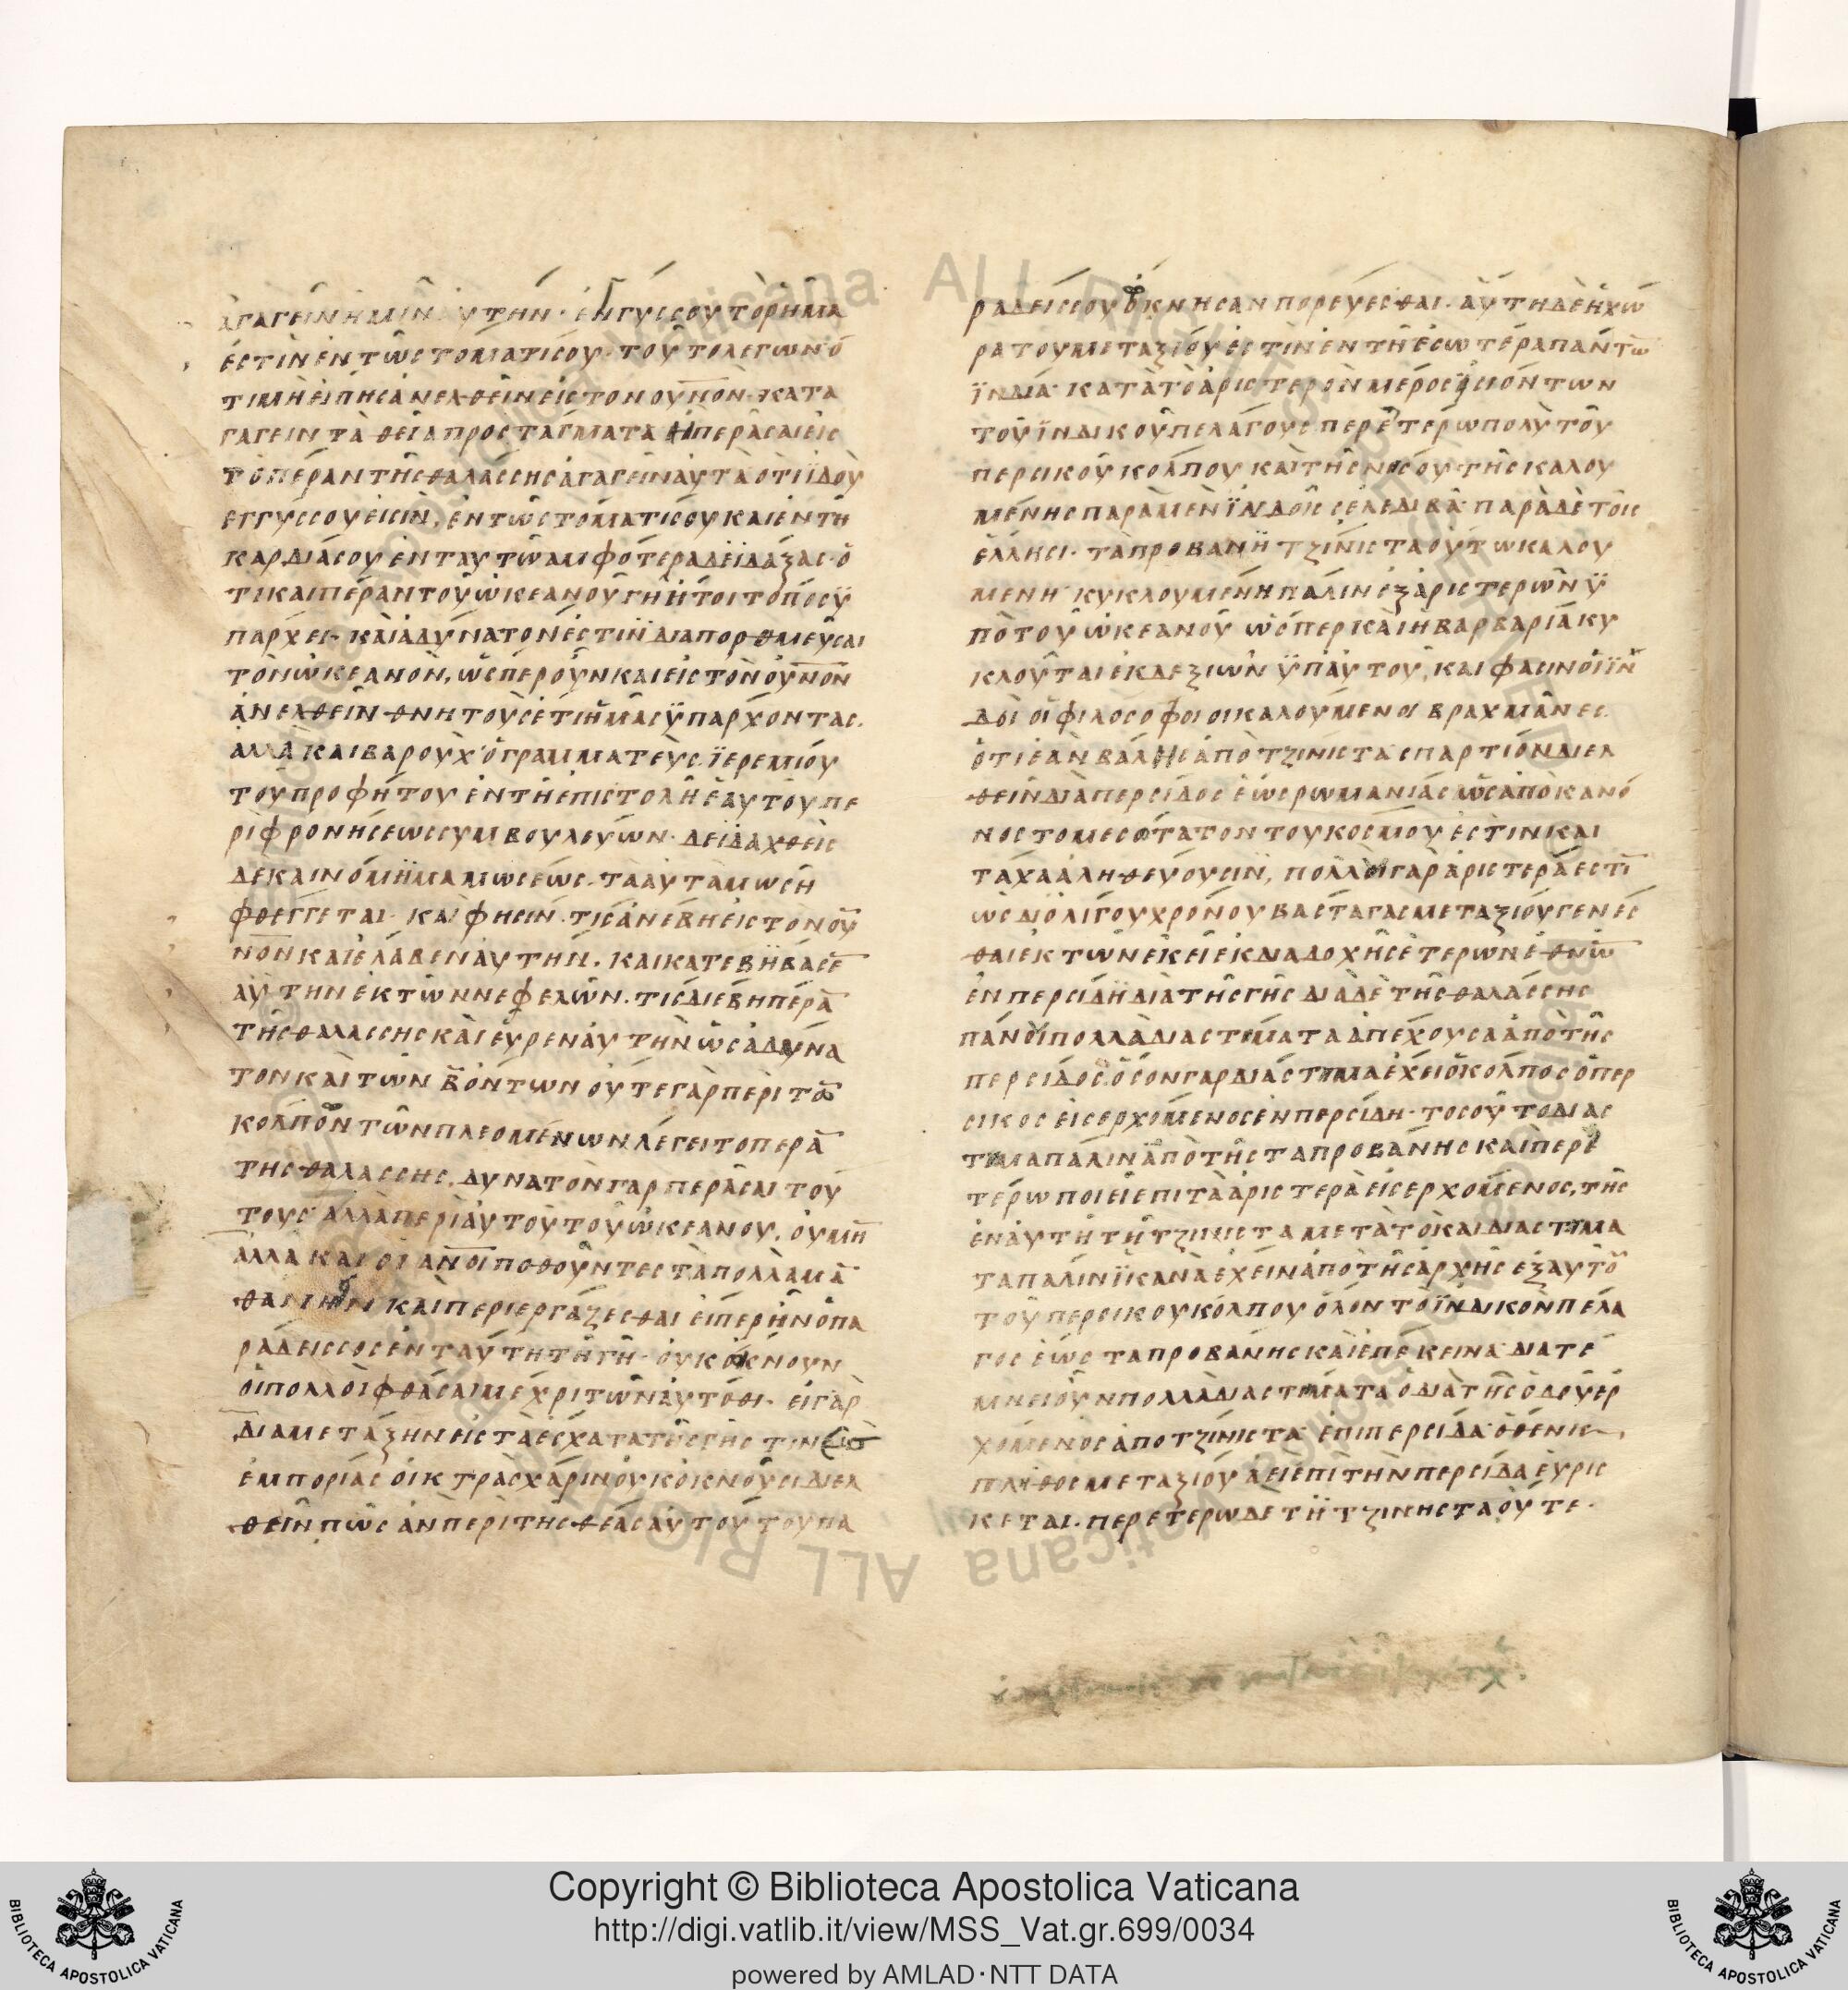 ἀγαγεῖν ἡμῖν αὐτήν · ἐγγύς σου τὸ ρῆμα
ἐστὶν ἐν τῶ στόματί σου · τοῦτο λέγων ὅ
τι μὴ εἴπησ ἀνελθεῖν εἰς τὸν οὐνὸν · κατα
γαγεῖν τὰ θεῖα προστάγματα ἢ περᾶσαι εἰς
τὸ πέραν τῆς θαλάσσης ἀγαγεῖν αὐτὰ ὅτι ἰδοὺ
ἐγγύς σου εἰσὶν, ἐν τῶ στόματί σου καὶ ἐν τῆ
καρδία σου ἐνταῦτω ἀμφότερα δεϊδάξας · ὅ
τι καὶ πέραν τοῦ ὠκεανοῦ γῆ ἤτοι τόπος ϋ
πάρχει · καὶ ἀδύνατον ἐστιν διαπορθμεῦσαι
τὸν ὠκεανόν, ὥσπερ οὖν καὶ εἰς τὸν οὐνὸν
ἀνελθεῖν θνητοὺς ἔτι ἡμᾶς ϋπάρχοντας.
ἀλλὰ καὶ βαροὺχ ὁ γραμματεὺς ϊερεμίου
τοῦ προφήτου ἐν τῆ ἐπιστολῆ ἑαυτοῦ πε
ρὶ φρονήσεως συμβουλεύων · δεϊδαχθεὶς
δὲ καὶ νόμημα μωσέως · τὰ αὐτὰ μωσῆ
φθέγγεται · καὶ φησιν · τίς ἀνέβη εἰς τὸν οὐ
νὸν καὶ ἔλαβεν αὐτήν · καὶ κατεβήβασε
αὐτὴν ἐκ τῶν νεφελῶν · τίς διέβη πέρα
τῆς θαλάσσης καὶ εὗρεν αὐτὴν ὡς ἀδύνα
τον καὶ τῶν β ὄντων οὔτε γὰρ περὶ τῶ
κόλπον τῶν πλεομένων λέγει τὸ πέρα
τῆς θαλάσσης, δυνατὸν γὰρ περᾶσαι τού
τους ἀλλὰ περὶ αὐτοῦ τοῦ ὠκεανοῦ · οὐ μὴ
ἀλλὰ καὶ οἱ ανοι ποθοῦντες τὰ πολλὰ μα
θάνειν καὶ περιεργάζεσθαι εἴπερ ἦν ὁ πα
ράδεισσος ἐν ταύτη τῆ γῆ · οὐκ ὄκνουν
οἱ πολλοὶ φθάσαι μέχρι τῶν αὐτόθι · εἰ γὰρ
διὰ μετάξην εἰς τὰ ἔσχατα τῆς γῆς τινες
ἐμπορίας οἰκτρᾶς χάριν οὐκ ὀκνοῦσι διελ
θεῖν πῶς ἂν περὶ τῆς θέας αὐτοῦ τοῦ πα
ραδείσσου ὄκνησαν πορεύεσθαι · αὕτη δὲ ἡ χώ
ρα τοῦ μεταξίου ἐστὶν ἐν τῆ ἐσωτέρα πάντω
ϊνδία · κατὰ τὸ ἀριστερὸν μέρος εἰσιόντων
τοῦ ϊνδικοῦ πελάγους περετέρω πολὺ τοῦ
περσικοῦ κόλπου καὶ τῆς νήσου τῆς καλου
μένης παρὰ μὲν ϊνδοῖς σελεδίβα · παρὰ δὲ τοῖς
ἕλλησι · ταπροβάνη τζίνιστα οὕτω καλου
μένη · κυκλουμένη πάλιν ἐξ ἀριστερῶν ϋ
πὸ τοῦ ὠκεανοῦ ὥσπερ καὶ ἡ βαρβαρία κυ
κλοῦται ἐκ δεξιῶν ϋπ αὐτοῦ, καὶ φασιν οἱ ϊν
δοὶ οἱ φιλόσοφοι οἱ καλούμενοι βραχμᾶνες
ὅτι ἐὰν βάλης ἀπὸ τζίνιστα σπαρτίον διελ
θεῖν διὰ περσίδος ἕως ρωμανίας ὡς ἀπὸ κανό
νος τὸ μεσότατον τοῦ κόσμου ἐστὶν καὶ
τάχα ἀληθεύουσιν, πολλοὶ γὰρ ἀριστερά ἐστι
ὡς δι ὀλίγου χρόνου βασταγὰς μεταξίου γενέσ
θαι ἐκ τῶν ἐκεῖ ἐκ διαδοχῆς ἑτέρων ἐθνῶ
ἐν περσίδη διὰ τῆς γῆς διὰ δὲ τῆς θαλάσσης
πάνοι πολλὰ διαστήματα ἀπέχουσα ἀπὸ τῆς
περσίδος · ὅσον γὰρ διάστημα ἔχει ὁ κόλπος ὁ περ
σικὸς εἰσερχόμενος ἐν περσίδη · τοσοῦτο διάσ
τημα πάλιν ἀπὸ τῆς ταπροβάνης καὶ περε
τέρω ποιεῖ ἐπὶ τὰ ἀριστερὰ εἰσερχόμενος, τῆς
ἐν αὐτῆ τῆ τζίνιστα μετὰ τὸ καὶ διαστήμα
τα πάλιν ϊκανὰ ἔχειν ἀπὸ τῆς ἀρχῆς ἐξ αὐτοῦ
τοῦ περσικοῦ κόλπου ὅλον τὸ ϊνδικὸν πέλα
γος ἕως ταπροβάνης καὶ ἐπέκεινα · διατέ
μνει οὖν πολλὰ διαστήματα ὁ διὰ τῆς ὁδοῦ ἐρ
χόμενος ἀπὸ τζίνιστα ἐπὶ περσίδα · ὅθεν κ
πλῆθος μεταξίου ἀεὶ ἐπὶ τὴν περσίδα εὑρίσ
κεται · περετέρω δὲ τῆ τζίνηστα οὔτε ·
Copyright © Biblioteca Apostolica Vaticana
http://digi.vatlib.it/view/MSS_Vat.gr.699/0034
powered by AMLAD·NTT DATA
BIBLIOTECA APOSTOLICA VATICANA
BIBLIOTECA APOSTOLICA VATICANA